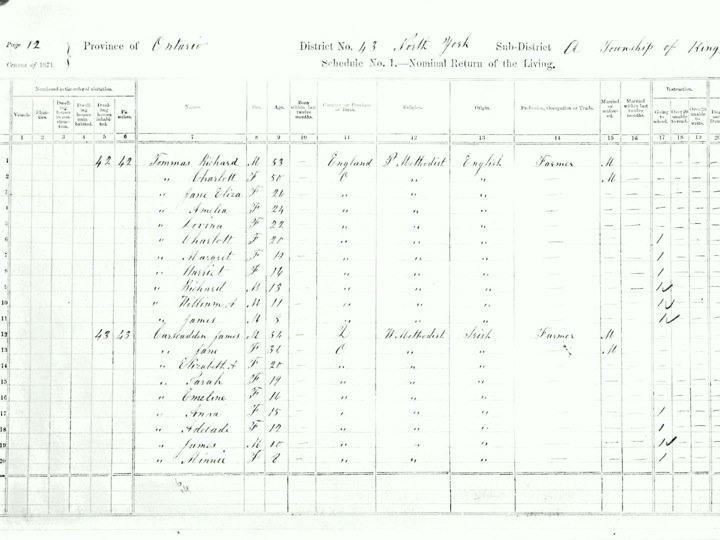 Page 12 Province of Ontario District No. 43 North York Sub-District A Township of King
Census of 1871. Schedule No. 1.—Nominal Return of the Living.
Numbered in the order of visitation. Instruction.
Vessels. Dwelling houses in construction. Dwelling houses uninhabited. Dwelling houses inhabited. Families. Names. Sex. Age. Born within last twelve months. Country or Province of Birth. Religion. Origin. Profession, Occupation or Trade. Married or widowed. Married within last twelve months. Going to school. Over 20 unable to read. Over 20 unable to write.
1 2 3 4 5 6 7 8 9 10 11 12 13 14 15 16 17 18 19 20
1 42 42 Tommas Richard M 53 — England P Methodist English Farmer M
2 " Charlott F 50 — O " " — M
3 " Jane Eliza F 26 — " " " —
4 " Amelia F 24 — " " " —
5 " Lovina F 22 — " " " —
6 " Charlott F 20 — " " " — 1
7 " Margret F 19 — " " " — 1
8 " Harriet F 14 — " " " — 1
9 " Richard M 13 — " " " — 1
10 " William A M 11 — " " " — 1
11 " James M 8 — " " " — 1
12 43 43 Carscadden James M 54 — I W Methodist Irish Farmer M
13 " Jane F 36 — O " " M
14 " Elizabeth A F 20 — " " "
15 " Sarah F 19 — " " "
16 " Emeline F 16 — " " "
17 " Anna F 15 — " " " 1
18 " Adelade F 12 — " " " 1
19 " James M 10 — " " " 1
20 " Minnie F 8 — " " " 1